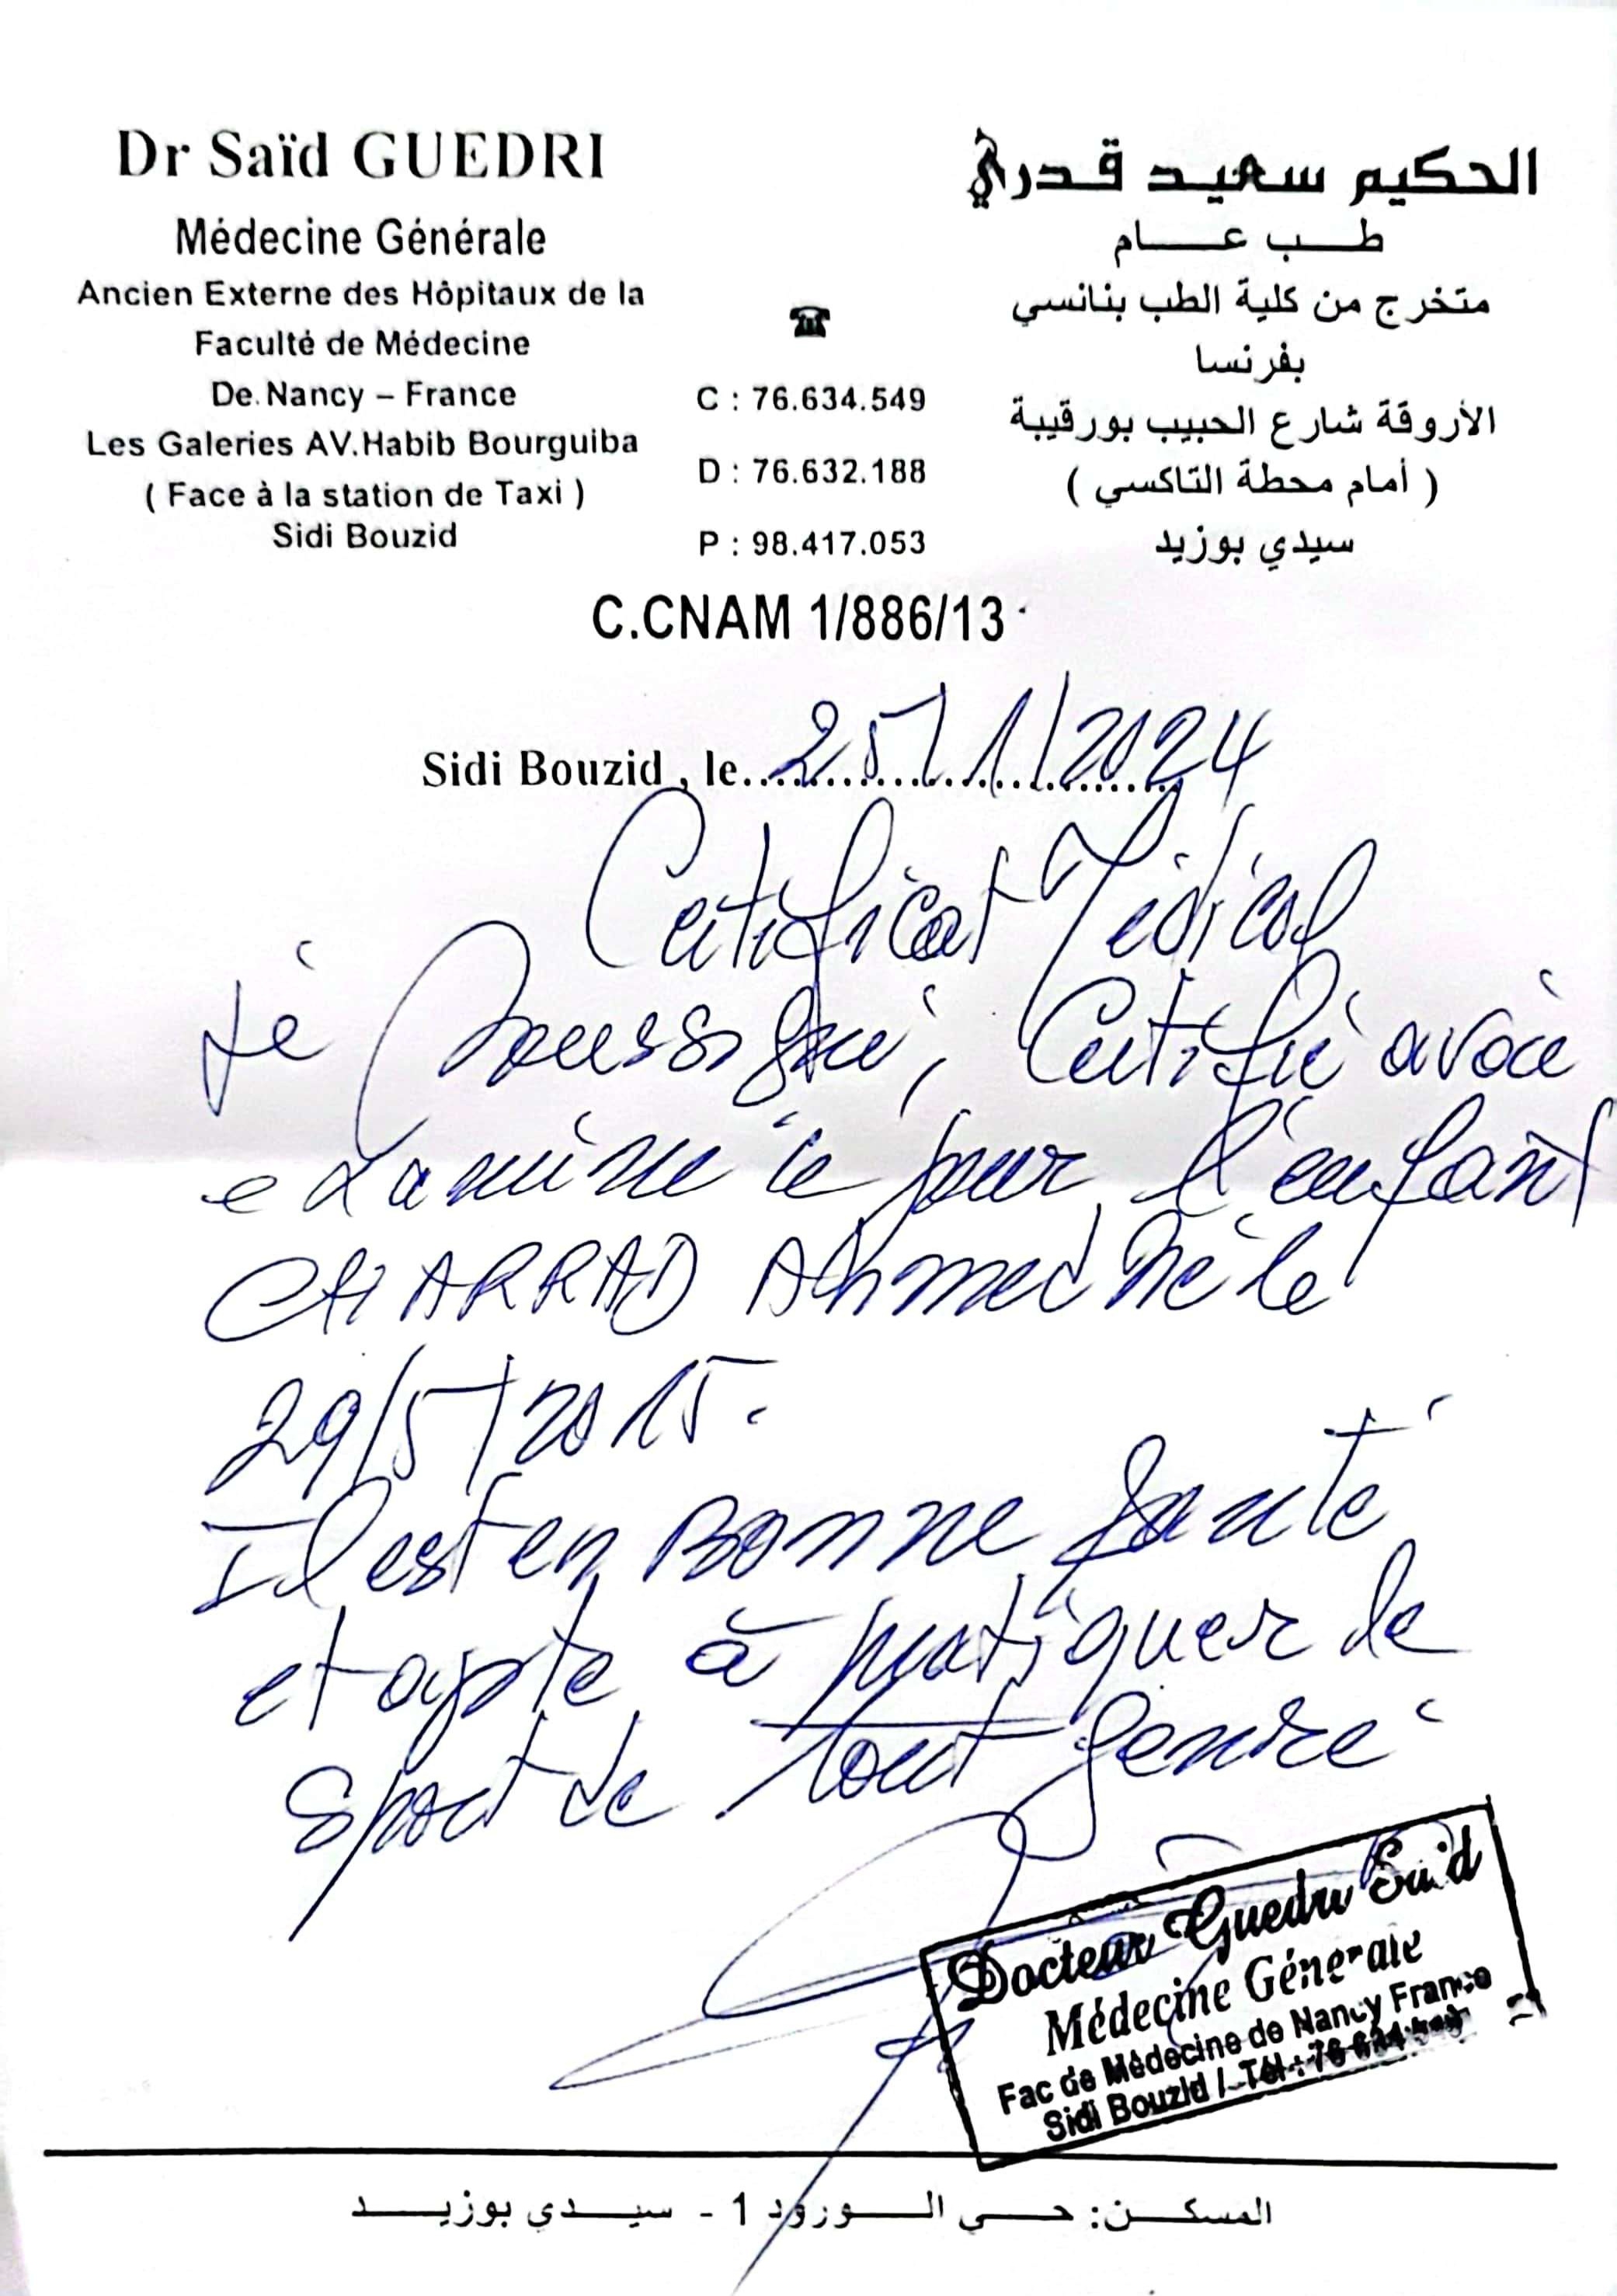 Dr Saïd GUEDRI
Médecine Générale
Ancien Externe des Hôpitaux de la
Faculté de Médecine
De Nancy – France
Les Galeries AV.Habib Bourguiba
( Face à la station de Taxi )
Sidi Bouzid
☎
C : 76.634.549
D : 76.632.188
P : 98.417.053
الحكيم سعيد قدري
طب عام
متخرج من كلية الطب بنانسي
بفرنسا
الأروقة شارع الحبيب بورقيبة
( أمام محطة التاكسي )
سيدي بوزيد
C.CNAM 1/886/13
Sidi Bouzid , le 25/1/2024
Certificat Médical
Je Soussigné, Certifie avoir
examiné ce jour l'enfant
CHARRAD Ahmed Né le
29/5/2015.
Il est en Bonne santé
et apte à pratiquer le
Sport de tout genre
Docteur Guedri Said
Médecine Générale
Fac de Médecine de Nancy France
Sidi Bouzid / Tél : 76 634
المسكن: حي الورود 1 - سيدي بوزيد